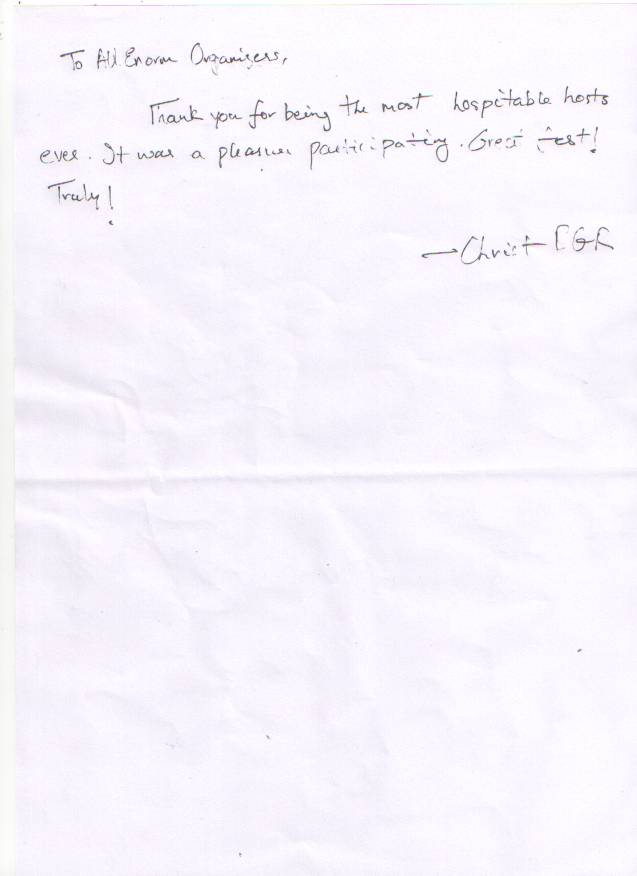 To All Enorm Organisers,
Thank you for being the most hospitable hosts
ever. It was a pleasure participating. Great fest!
Truly!
— Christ